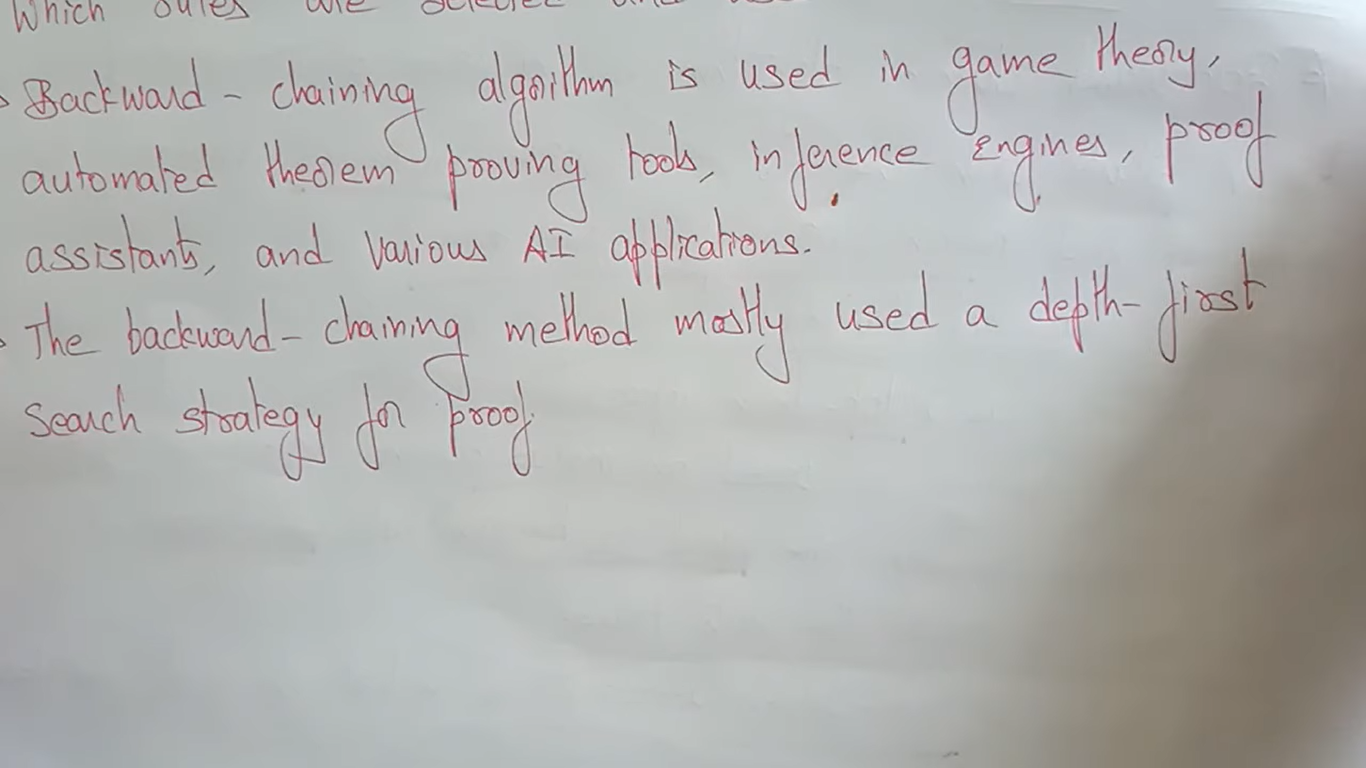 Which rules are selected and used
Backward - chaining algorithm is used in game theory,
automated theorem proving tools, inference engines, proof
assistants, and various AI applications.
The backward - chaining method mostly used a depth - first
Search strategy for proof.